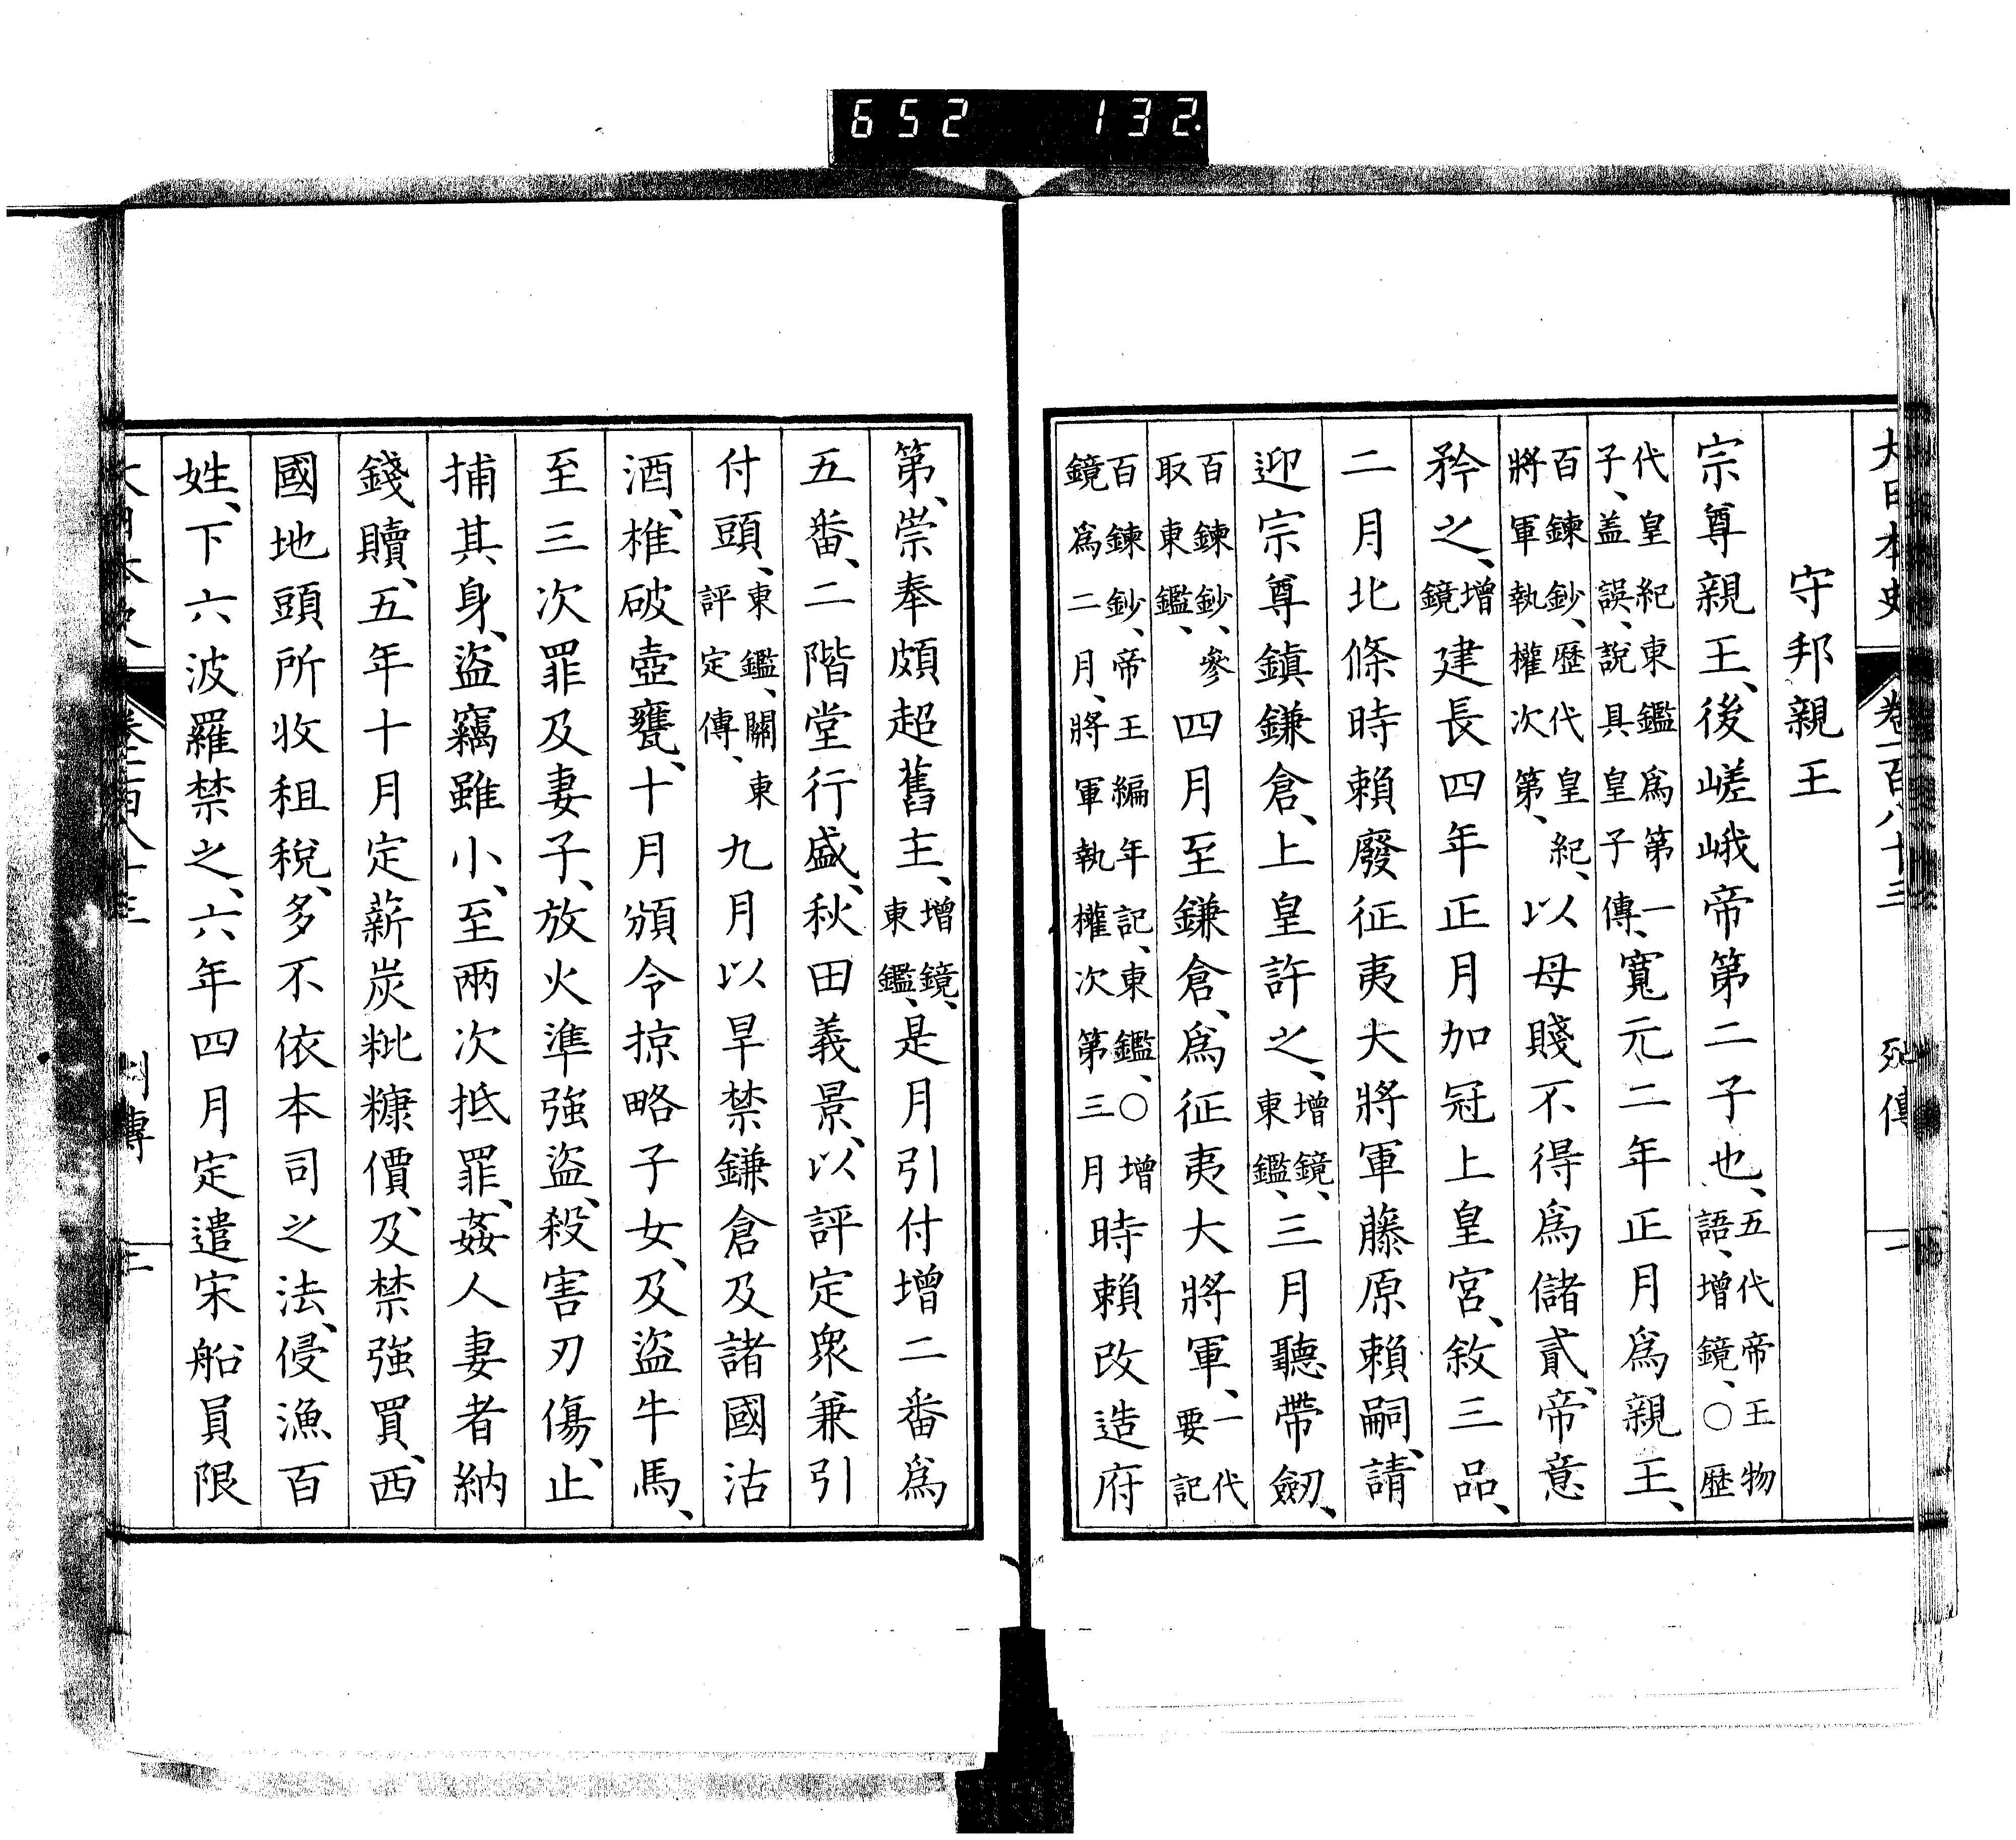 652 132.
大日本史 卷一百八十三 列傳 一
守邦親王
宗尊親王、後嵯峨帝第二子也、五代帝王物語、增鏡、○歷
代皇紀東鑑爲第一子、盖誤、說具皇子傳、寬元二年正月爲親王、
百鍊鈔、歷代皇紀、將軍執權次第、以母賤不得爲儲貳、帝意
矜之、增鏡建長四年正月加冠上皇宮、敘三品、
二月北條時賴廢征夷大將軍藤原賴嗣、請
迎宗尊鎮鎌倉、上皇許之、增鏡、東鑑、三月聽帶劒、
百鍊鈔、參取東鑑、四月至鎌倉、爲征夷大將軍、一代要記
百鍊鈔、帝王編年記、東鑑、○增鏡爲二月、將軍執權次第三月時賴改造府
第、崇奉頗超舊主、增鏡、東鑑、是月引付增二番爲
五番、二階堂行盛、秋田義景、以評定衆兼引
付頭、東鑑、關東評定傳、九月以旱禁鎌倉及諸國沽
酒、椎破壺甕、十月頒令掠略子女、及盜牛馬、
至三次罪及妻子、放火準強盜、殺害刃傷、止
捕其身、盜竊雖小、至兩次抵罪、姦人妻者納
錢贖、五年十月定薪炭粃糠價、及禁強買、西
國地頭所收租稅、多不依本司之法、侵漁百
姓、下六波羅禁之、六年四月定遣宋船員限
大日本史 卷一百八十三 列傳 二